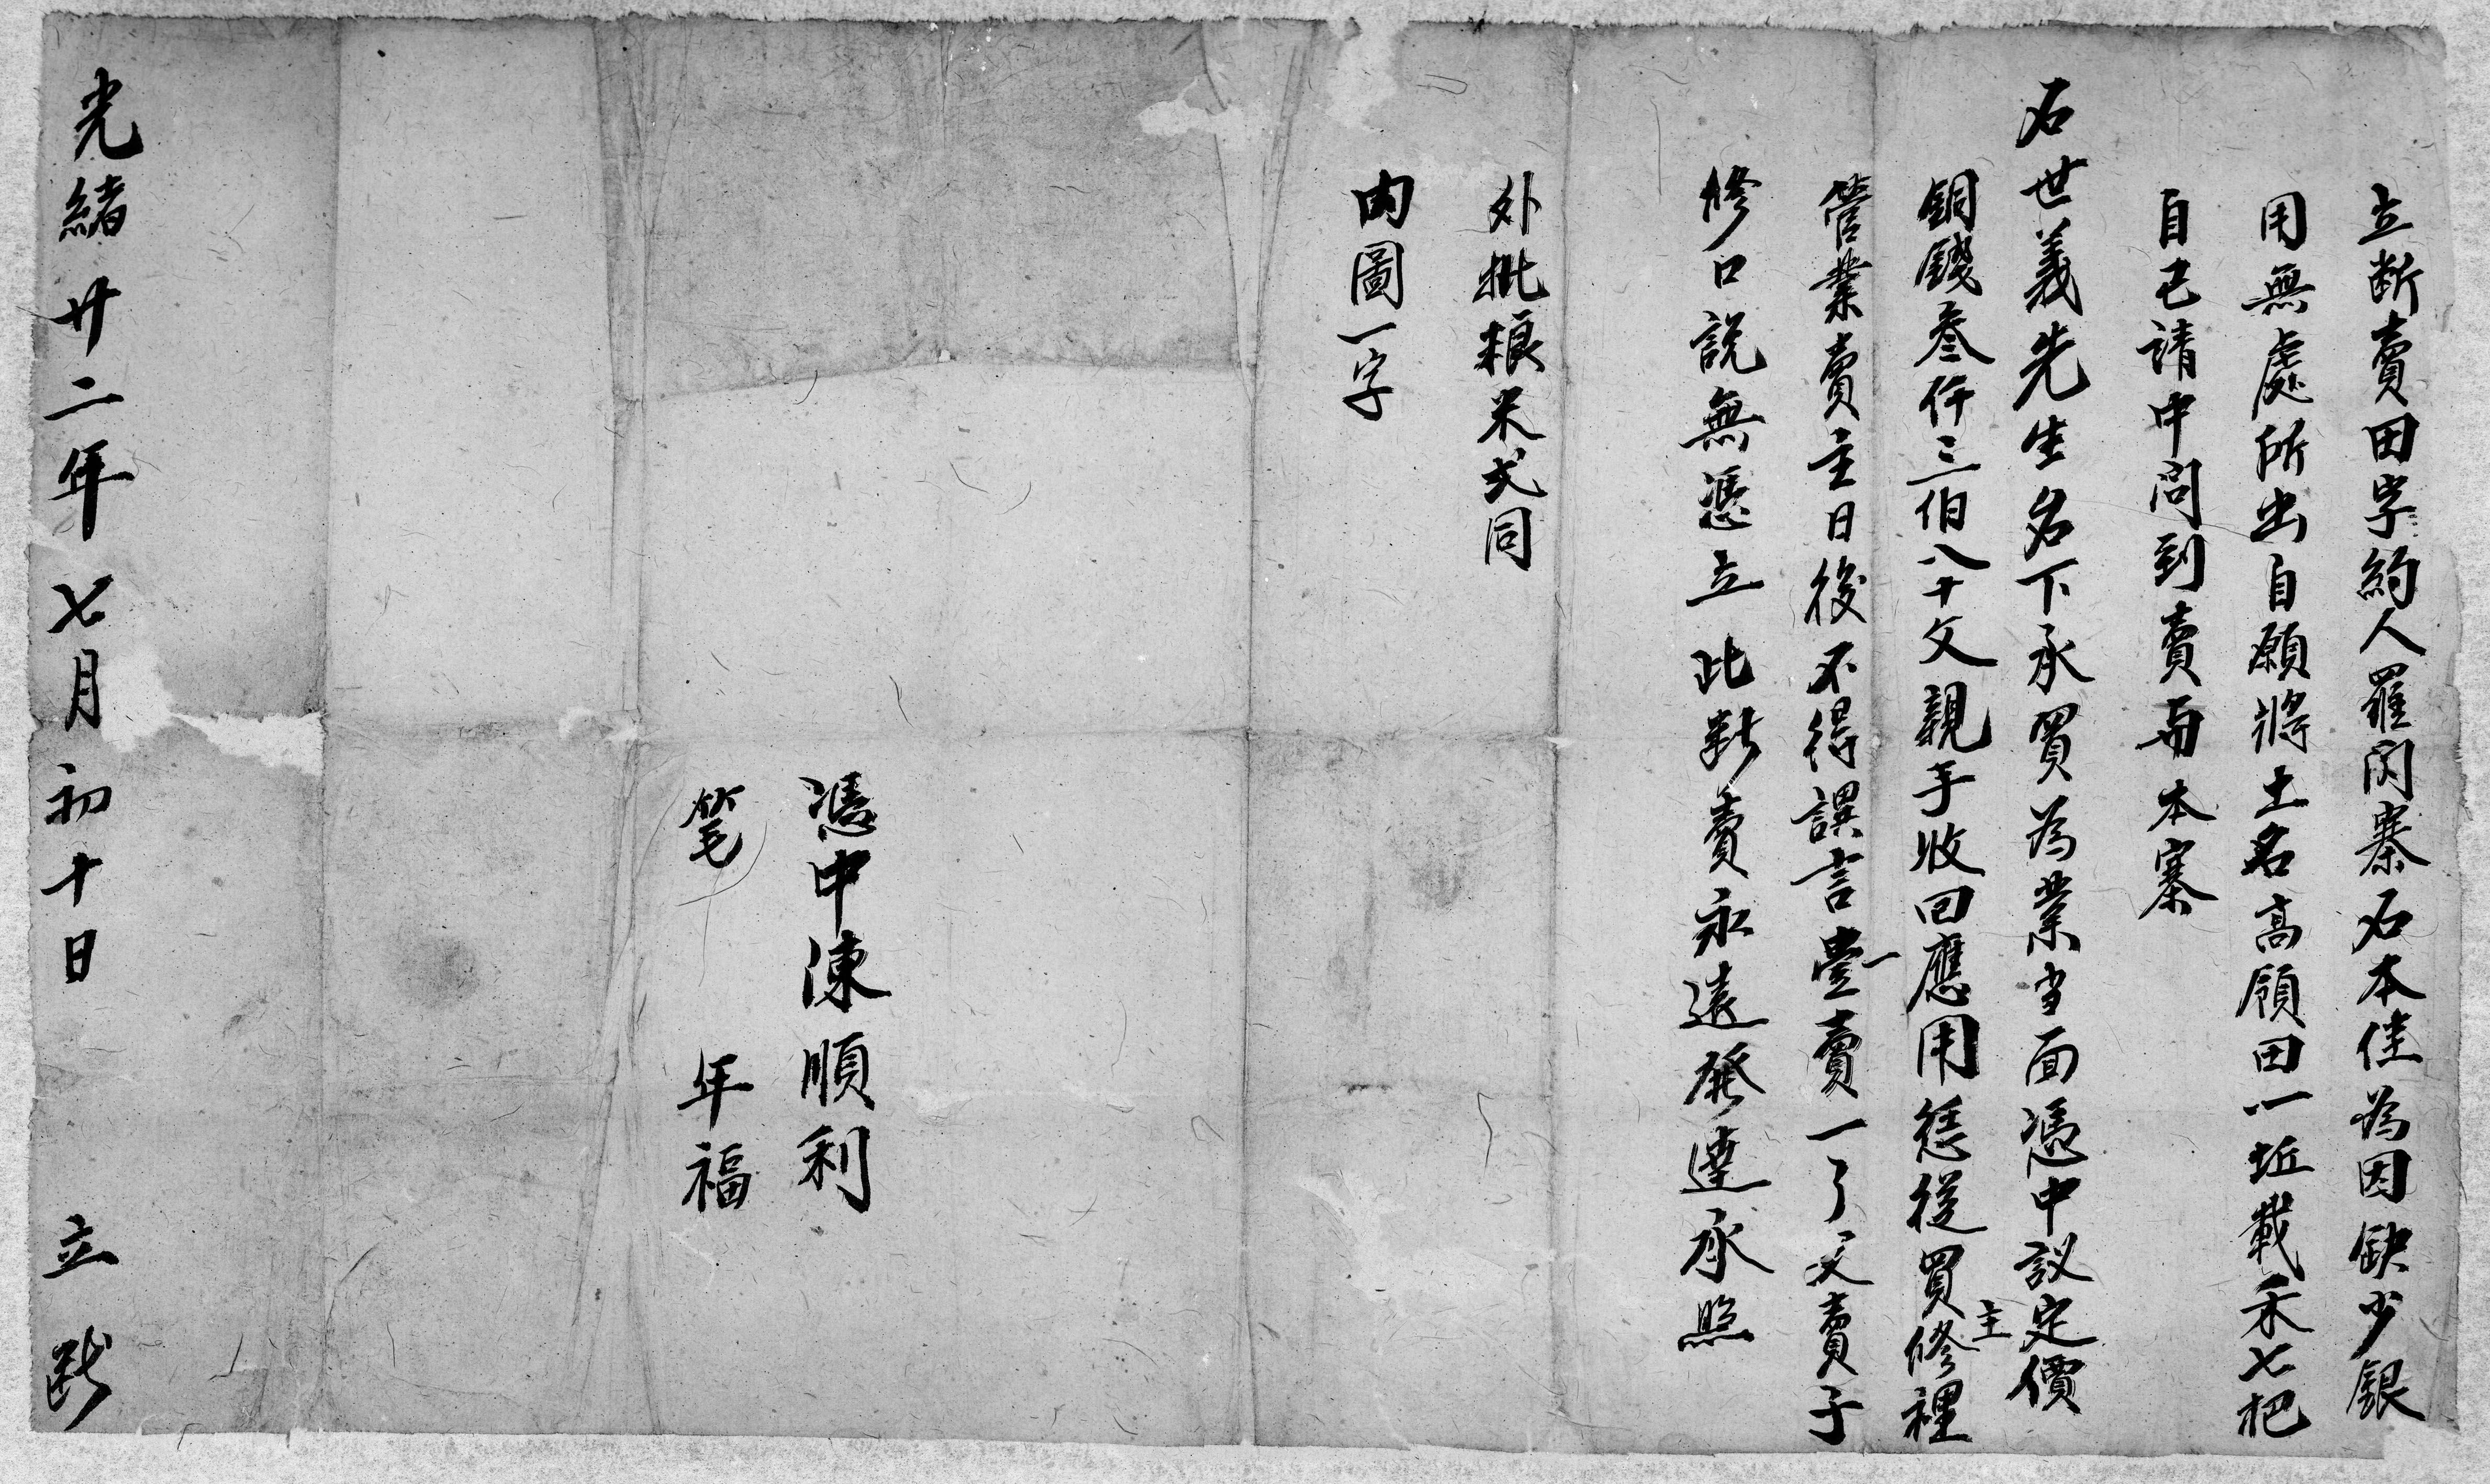 立断賣田字約人羅閃寨石本佳為因缺少銀
用無處所出自願將土名高領田一坵載禾七把
自己請中問到賣而本寨
石世義先生名下承買為業当面憑中議定價
銅錢叁仟三伯八十文親手收回應用恁從買主修裡
管業賣主日後不得誤言壹一賣一了父賣子
修口說無憑立此断賣永遠發達承照
外批粮米弍同
内圖一字
憑中陳順利
笔 年福
光緒廿二年七月初十日 立断